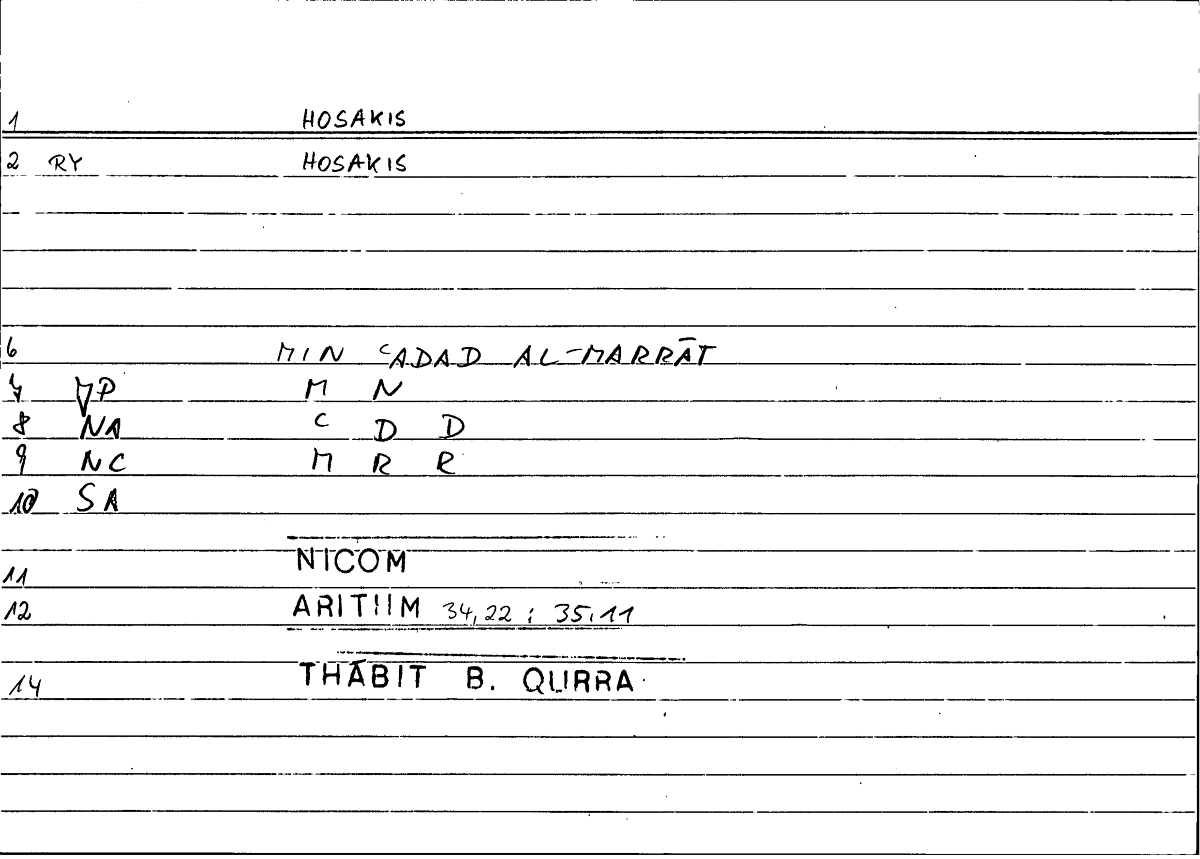 1 HOSAKIS
2 RY HOSAKIS
6 MIN ʿADAD AL-MARRĀT
7 VP M N
8 NA ʿ D D
9 NC M R R
10 SA
11 NICOM
12 ARITHM 34,22 ; 35,11
14 THĀBIT B. QURRA